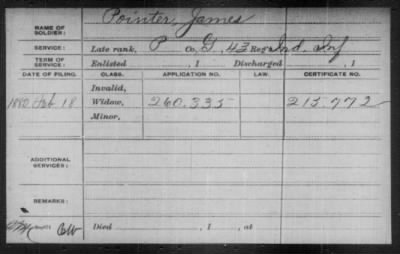 NAME OF SOLDIER: Pointer, James
SERVICE: Late rank, P Co. G, 43 Reg't Ind. Inf
TERM OF SERVICE: Enlisted , 1 Discharged , 1
DATE OF FILING. CLASS. APPLICATION NO. LAW. CERTIFICATE NO.
Invalid,
1880 Feb 18 Widow, 260.335 215.772
Minor,
ADDITIONAL SERVICES:
REMARKS:
CW Died , 1 , at